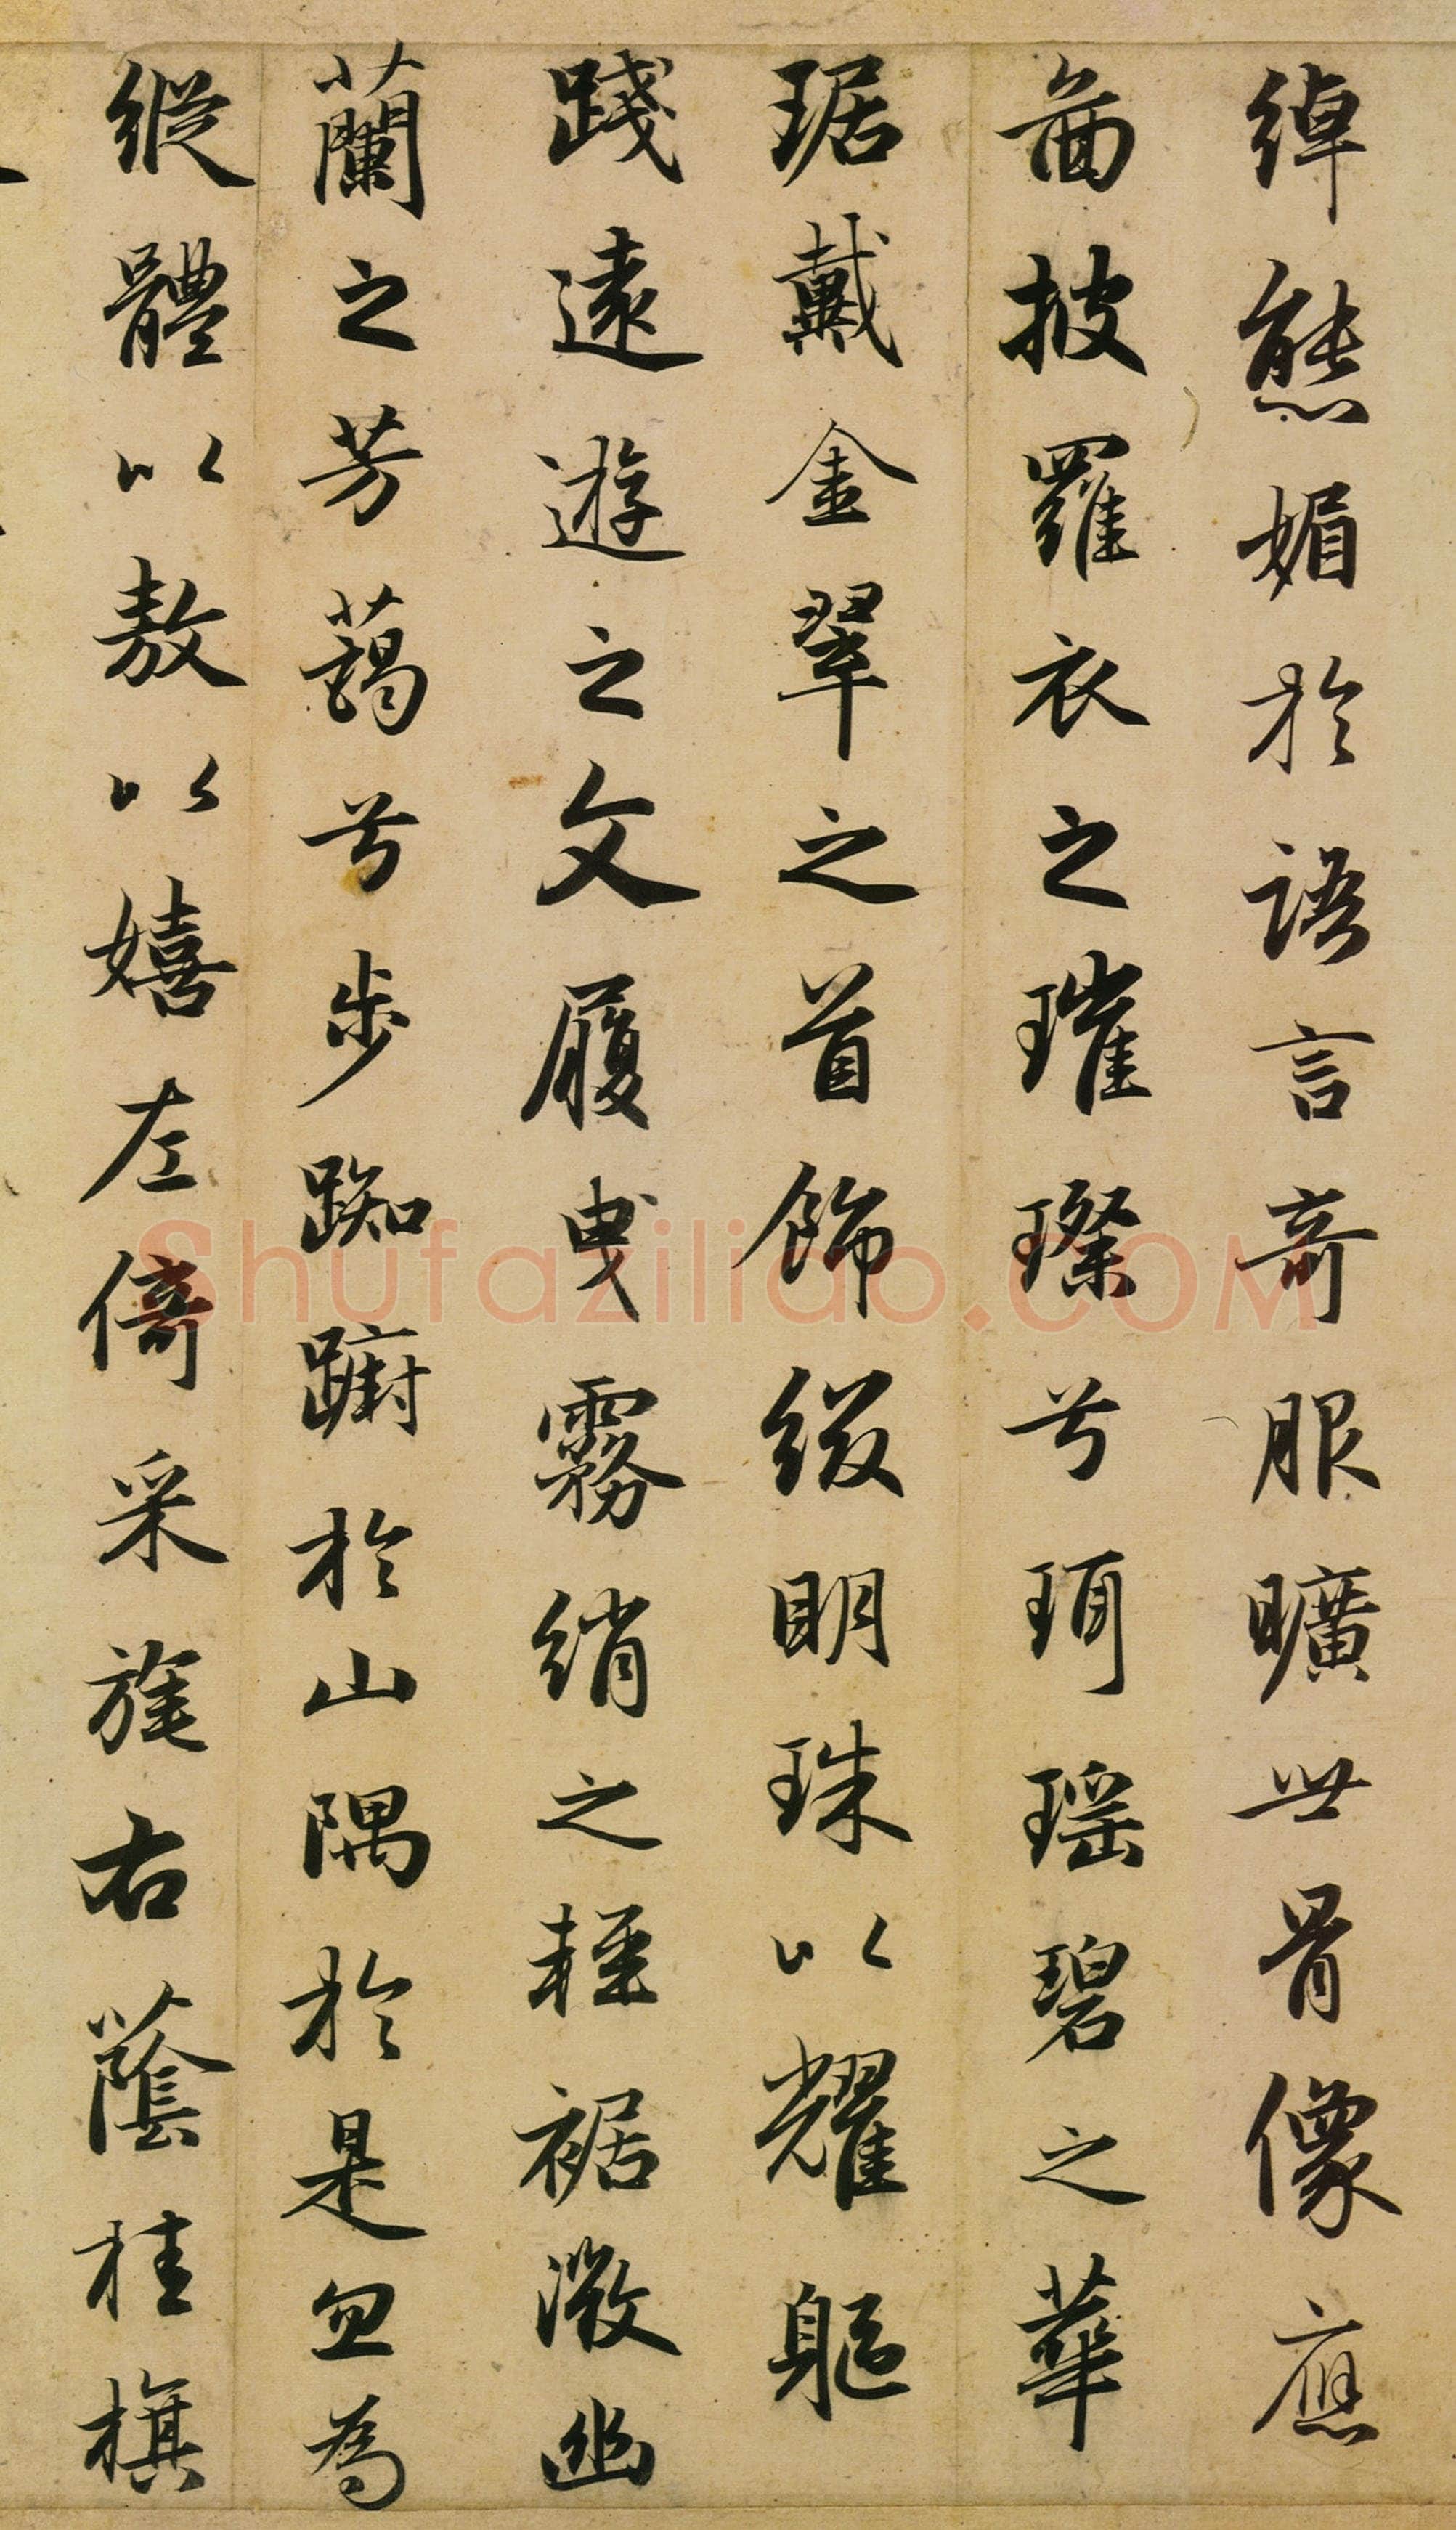 綽態媚於語言奇服曠世骨像應
啚披羅衣之璀璨兮珥瑶碧之華
琚戴金翠之首飾綴明珠以耀軀
踐遠遊之文履曳霧綃之輕裾微幽
蘭之芳藹兮步踟躕於山隅於是忽焉
縱體以敖以嬉左倚采旄右蔭桂旗
Shufaziliao.COM